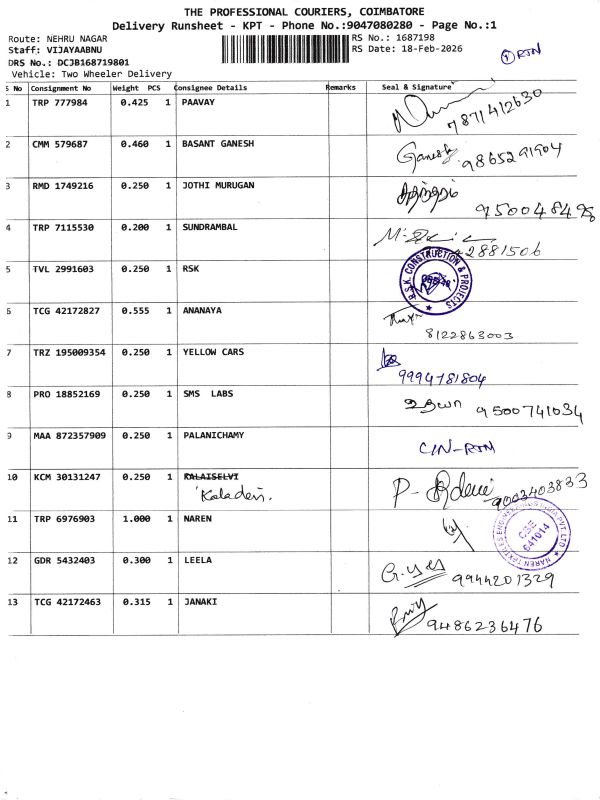 THE PROFESSIONAL COURIERS, COIMBATORE
Delivery Runsheet - KPT - Phone No.:9047080280 - Page No.:1
Route: NEHRU NAGAR RS No.: 1687198
Staff: VIJAYAABNU RS Date: 18-Feb-2026
DRS No.: DCJB168719801
Vehicle: Two Wheeler Delivery
1 RTN
S No Consignment No Weight PCS Consignee Details Remarks Seal & Signature
1 TRP 777984 0.425 1 PAAVAY 7871412630
2 CMM 579687 0.460 1 BASANT GANESH Ganesh 9865291904
3 RMD 1749216 0.250 1 JOTHI MURUGAN
4 TRP 7115530 0.200 1 SUNDRAMBAL 2881506
5 TVL 2991603 0.250 1 RSK R.S.K. CONSTRUCTION & PROJECTS
6 TCG 42172827 0.555 1 ANANAYA 8122863003
7 TRZ 195009354 0.250 1 YELLOW CARS 9994781804
8 PRO 18852169 0.250 1 SMS LABS உதயா 9500741034
9 MAA 872357909 0.250 1 PALANICHAMY C/N-RTN
10 KCM 30131247 0.250 1 KALAISELVI 9003403833
Kaladevi.
11 TRP 6976903 1.000 1 NAREN CBE 641014
12 GDR 5432403 0.300 1 LEELA 9944201329
13 TCG 42172463 0.315 1 JANAKI 9486236476